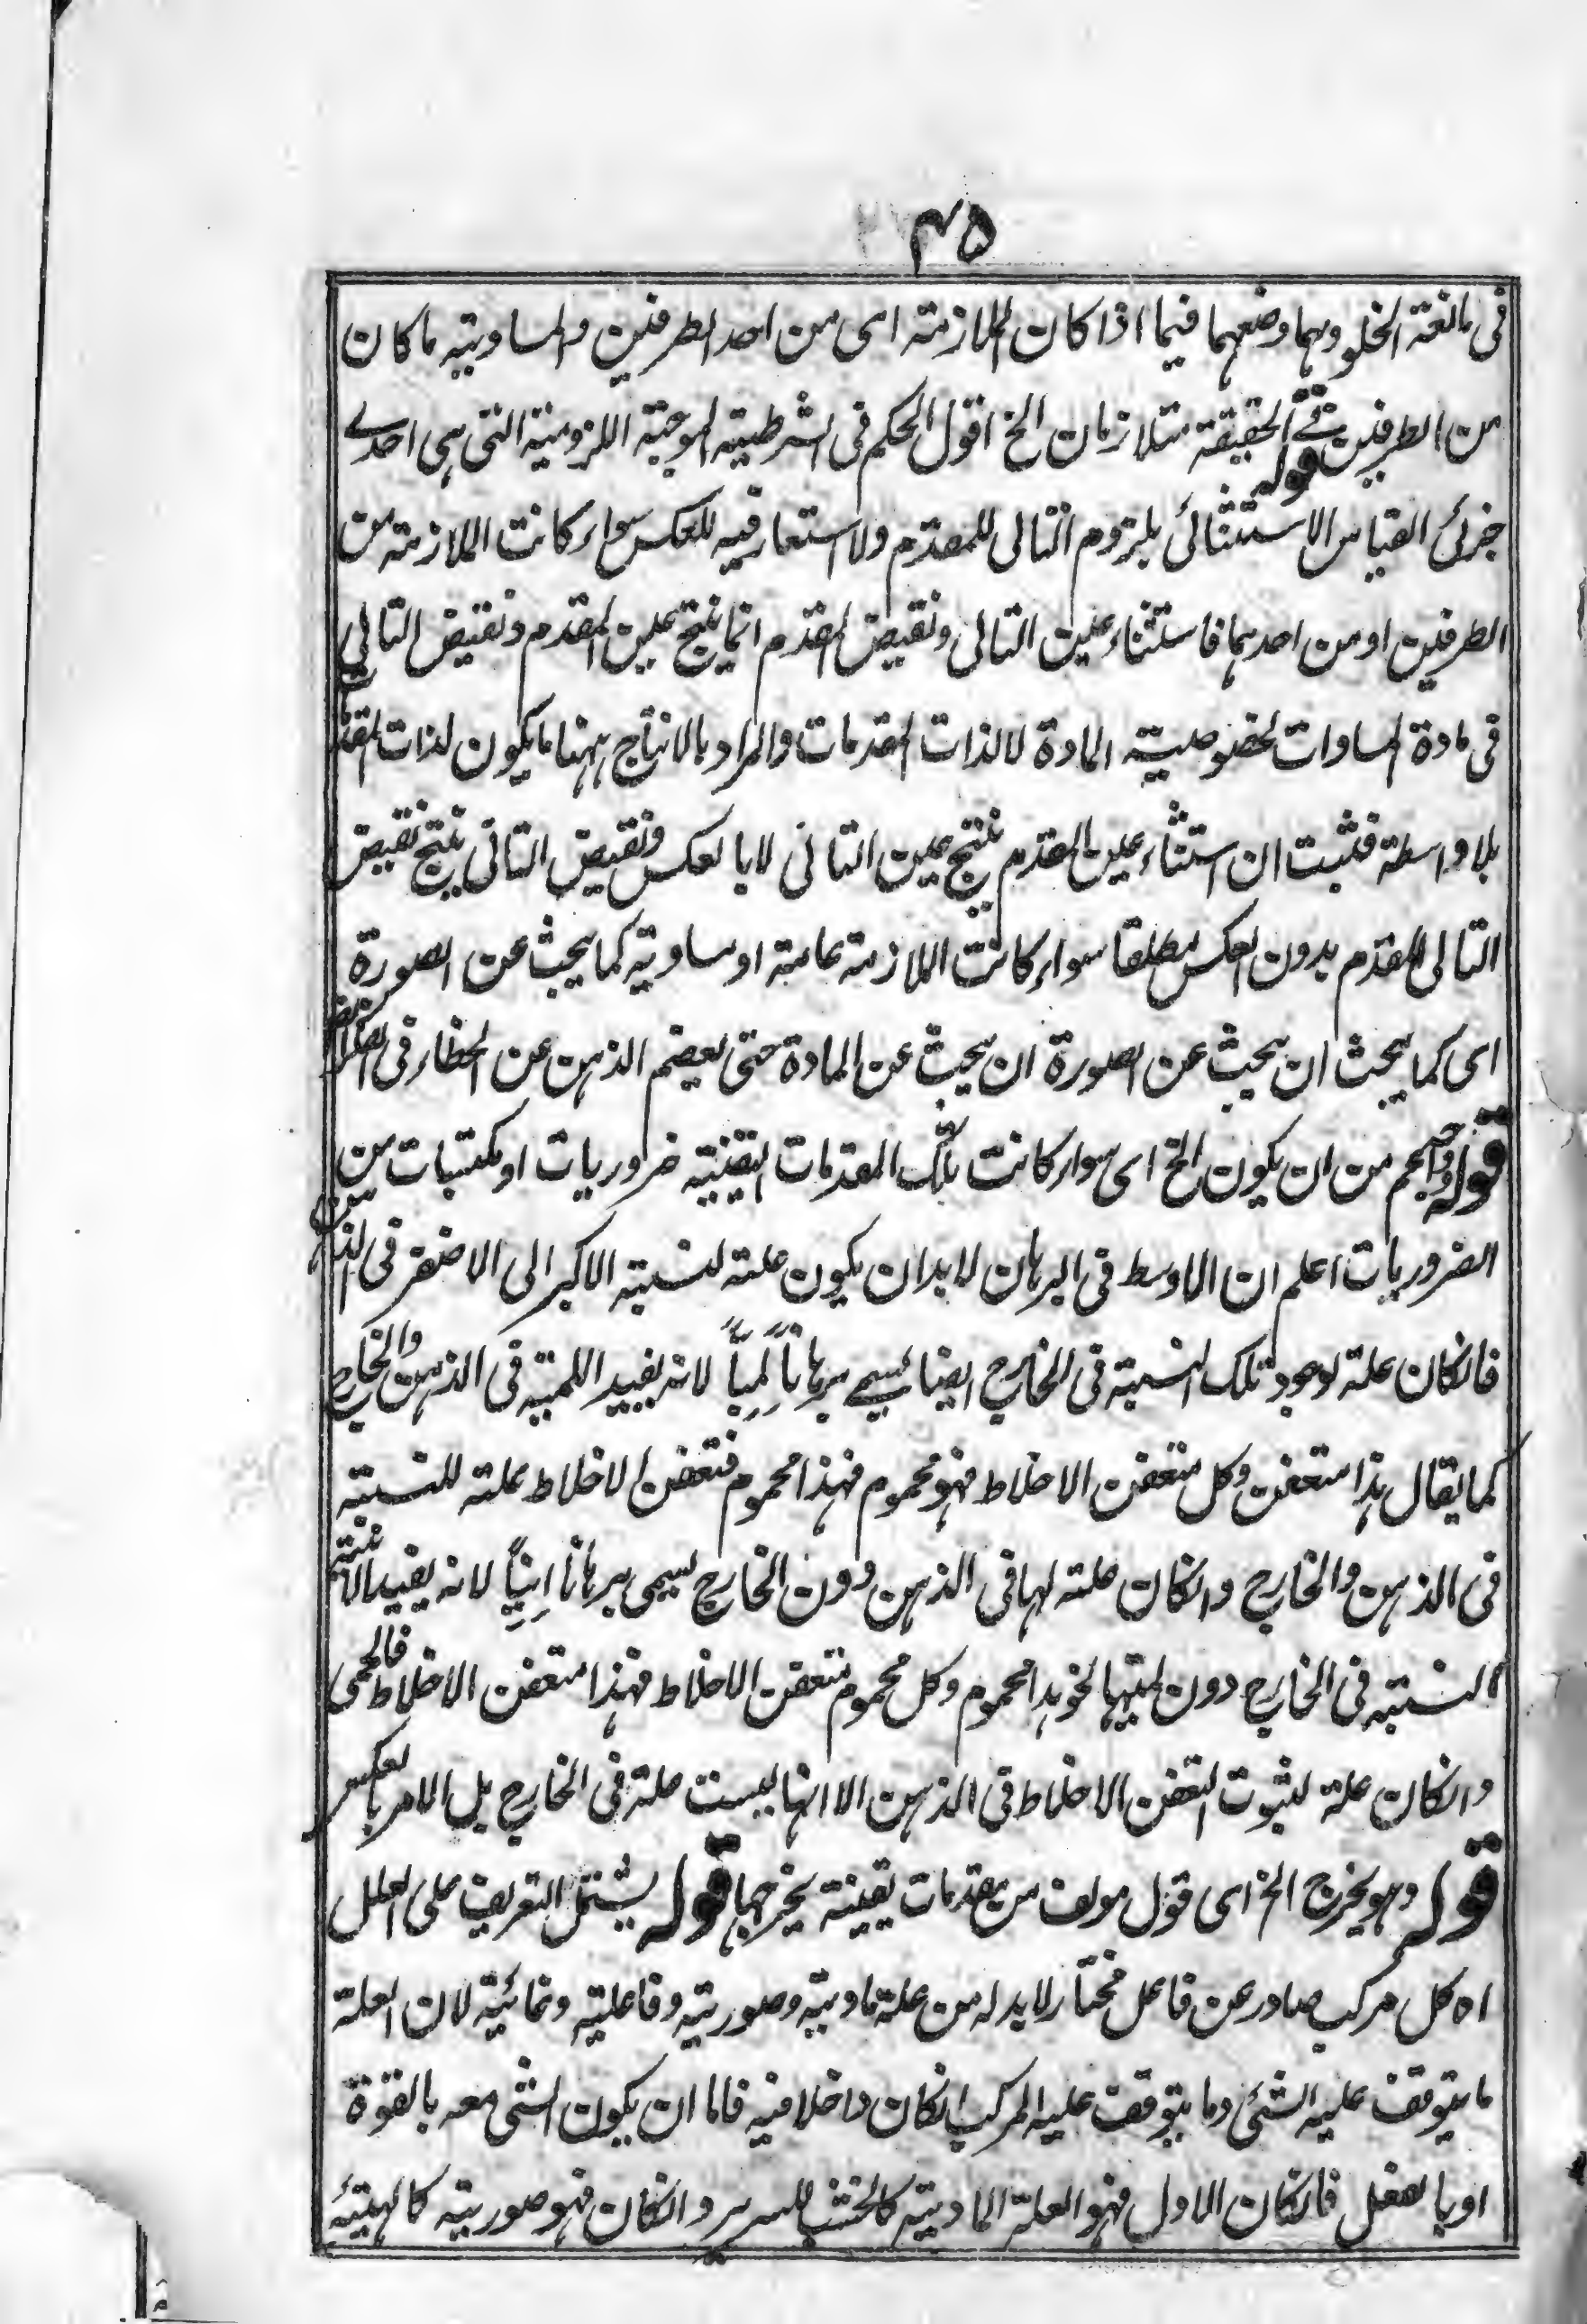 ٤٥
فى مانعة الخلو وبهما وضعهما فيما اذا كان الملازمة اى من احد الطرفين والمساوية ما كان
من الطرفين قوله فى الحقيقة متلازمان الخ اقول الحكم فى الشرطية الموجبة اللزومية التى هى احدى
جزئى القياس الاستثنائى بلزوم التالى للمقدم ولا استعار فيه للعكس سواء كانت الملازمة من
الطرفين او من احدهما فاستثناء عين التالى ونقيض المقدم انما ينتج عين المقدم ونقيض التالى
فى مادة المساوات لخصوصية المادة لا لذات المقدمات والمراد بالانتاج ههنا ما يكون لذات المقدمات
بلا واسطة فثبت ان استثناء عين المقدم ينتج عين التالى لا بالعكس ونقيض التالى ينتج نقيض
التالى المقدم بدون العكس مطلقا سواء كانت الملازمة عامة او مساوية كما يجب عن الصورة
اى كما يجب ان يبحث عن الصورة ان يبحث عن المادة حتى يعصم الذهن عن الخطاء فى الفكر
قوله واجم من ان يكون الخ اى سواء كانت تلك المقدمات اليقينية ضروريات او مكتسبات من
الضروريات اعلم ان الاوسط فى البرهان لا بد ان يكون علة لنسبة الاكبر الى الاصغر فى الذهن
فانكان علة لوجود تلك النسبة فى الخارج ايضا يسمى برهاناً لمياً لانه يفيد اللمية فى الذهن والخارج
كما يقال هذا متعفن وكل متعفن الاخلاط فهو محموم فهذا محموم فتعفن الاخلاط علة للنسبة
فى الذهن والخارج وانكان علة لها فى الذهن دون الخارج يسمى برهانا انياً لانه يفيد الانية
النسبة فى الخارج دون لميتها نحو هذا محموم وكل محموم متعفن الاخلاط فهذا متعفن الاخلاط فالحمى
وانكان علة لثبوت التعفن الاخلاط فى الذهن الا انها ليست علة فى الخارج بل الامر بالعكس
قوله وهو يخرج الخ اى قول مولف من مقدمات يقينة يخرجها قوله يشتمل التعريف على العلل
اه كل مركب صادر عن فاعل مختار لا بد له من علة مادية وصورية وفاعلية وغائية لان العلة
ما يتوقف عليه الشئ وما يتوقف عليه المركب انكان داخلا فيه فاما ان يكون الشئ معه بالقوة
او بالفعل فانكان الاول فهو العلة المادية كالخشب للسرير وانكان فهو صورية كالهيئة